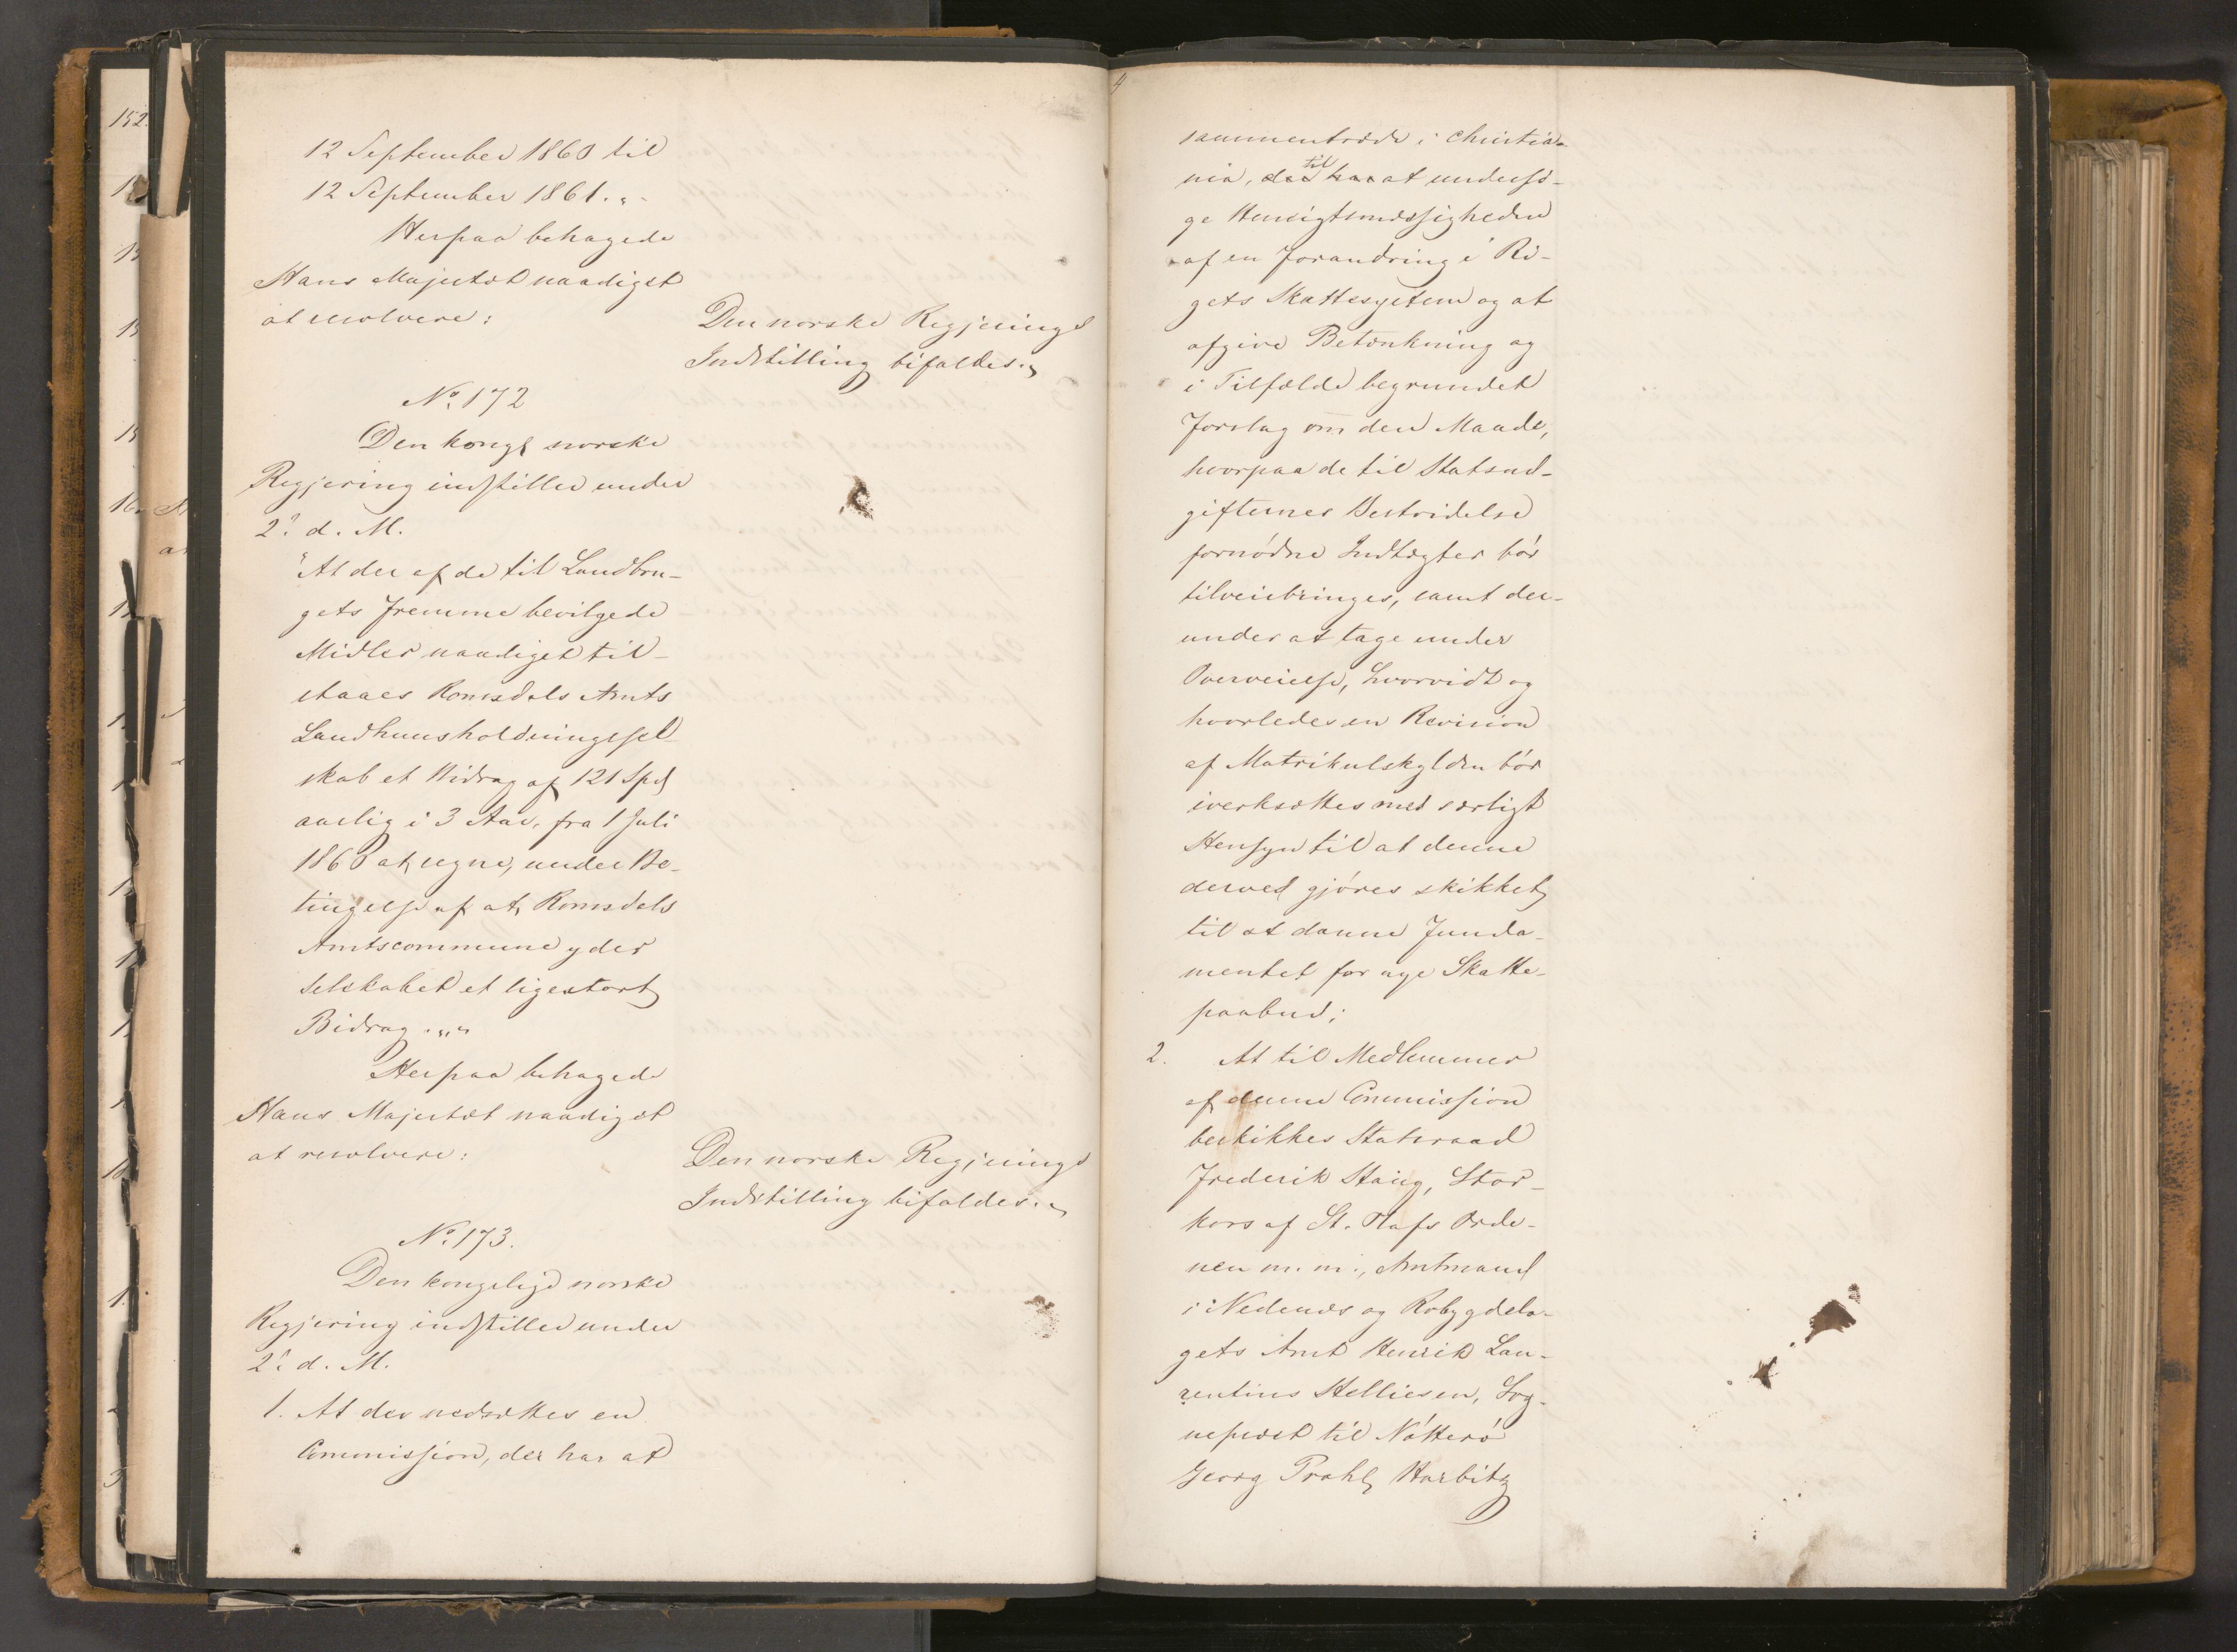 12 September 1860 til
12 September 1861.
Herpaa behagede
Hans Majestæt naadigst
at resolvere:
Den norske Regjerings
Indstilling bifaldes.
No. 172
Den kongl norske
Regjering indstiller under
2. d. M.
"At der af de til Landbru-
gets Fremme bevilgede
Midler naadigst til-
staaes Romsdals Amts
Landhuusholdningssel-
skab et Bidrag af 121 Spd
aarlig i 3 Aar, fra 1 Juli
1860 at regne, under Be-
tingelse af at Romsdals
Amtscommune yder
Selskabet et ligestort
Bidrag."
Herpaa behagede
Hans Majestæt naadigst
at resolvere:
Den norske Regjerings
Indstilling bifaldes.
No. 173.
Den kongelige norske
Regjering indstiller under
2. d. M.
1. At der nedsættes en
Commission, der har at
sammentræde i Christia-
nia, der til har at undersø-
ge Hensigtsmæssigheden
af en Forandring i Ri-
gets Skattesystem og at
afgive Betænkning og
i Tilfælde begrundet
Forslag om den Maade,
hvorpaa de til Statsud-
gifternes Bestridelse
fornødne Indtægter bør
tilveiebringes, samt der-
under at tage under
Overveielse, hvorvidt og
hvorledes en Revision
af Matrikulskylden bør
iverksættes med særligt
Hensyn til at denne
derved gjøres skikket
til at danne Funda-
mentet for nye Skatte-
paabud;
2. At til Medlemmer
af denne Commission
beskikkes Statsraad
Frederik Stang, Stor-
kors af St. Olafs Orde-
nen m. m., Amtmand
i Nedenæs og Robygdela-
gets Amt Henrik Lau-
rentius Helliesen, Sog-
nepræst til Nøtterø
Georg Prahl Harbitz